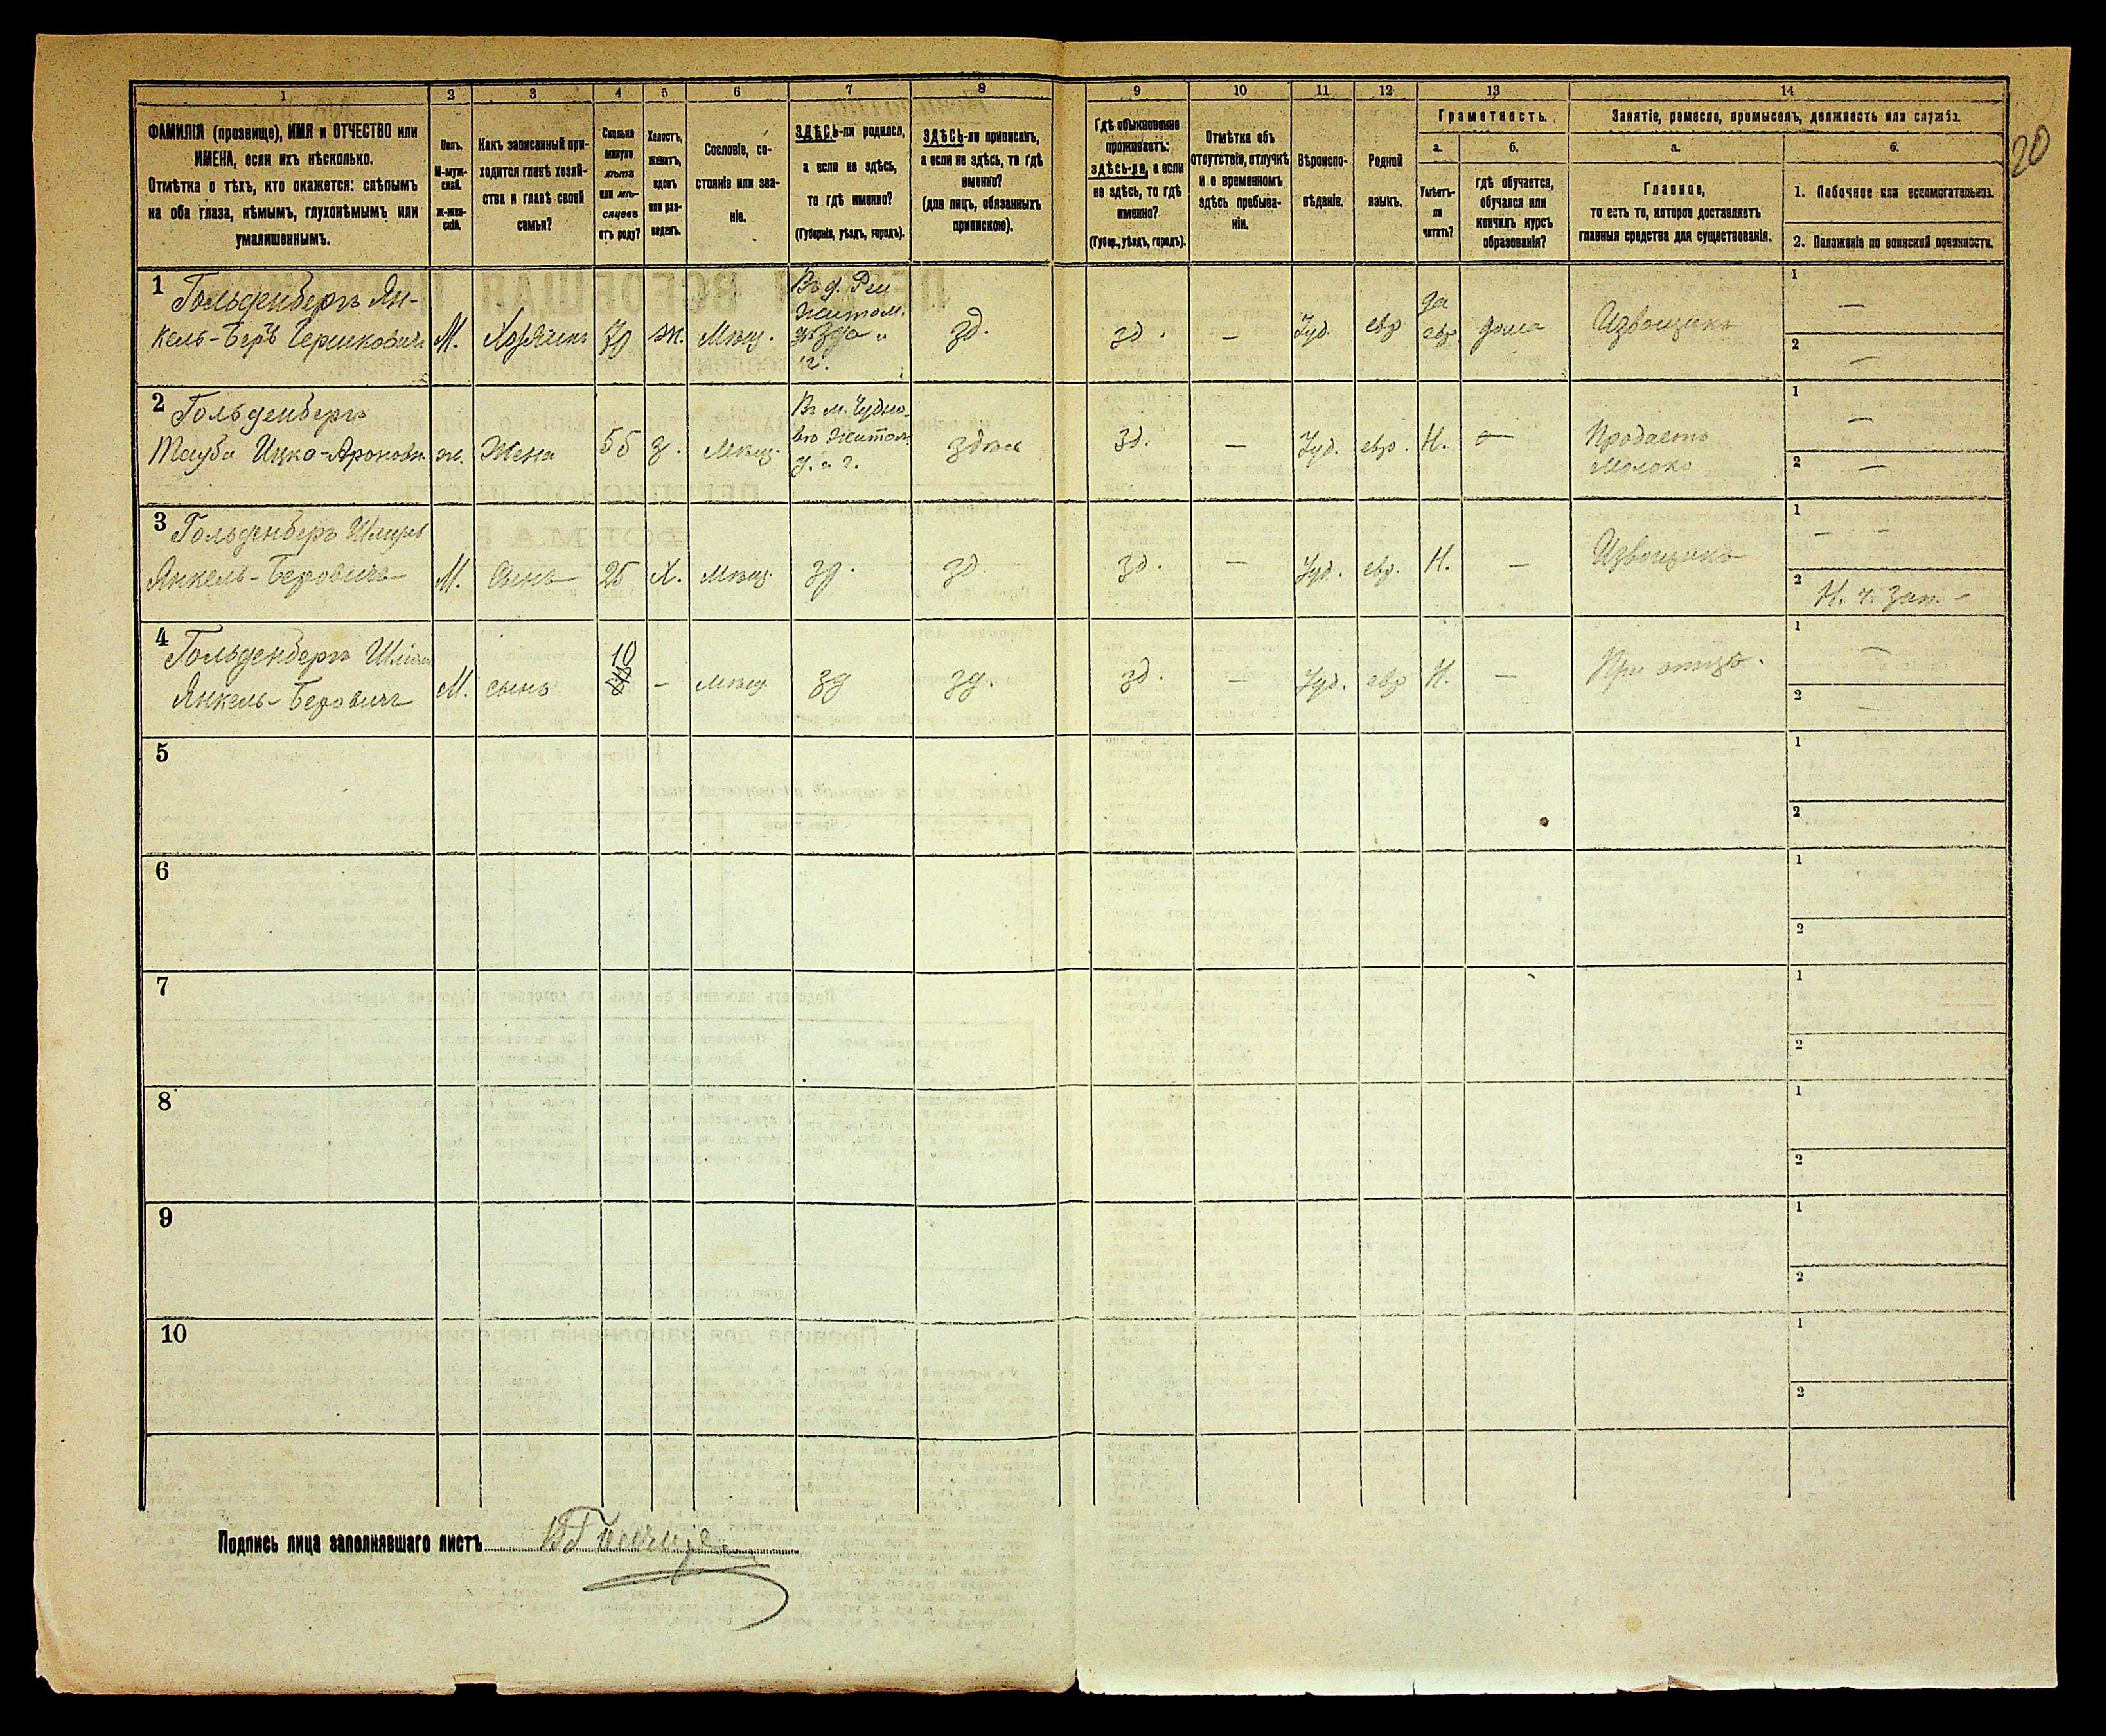 20
1 2 3 4 5 6 7 8 9 10 11 12 13 14
ФАМИЛІЯ (прозвище), ИМЯ и ОТЧЕСТВО или
ИМЕНА, если ихъ нѣсколько.
Отмѣтка о тѣхъ, кто окажется: слѣпымъ
на оба глаза, нѣмымъ, глухонѣмымъ или
умалишеннымъ.
Полъ.
М-муж-
ской.
Ж-жен-
скій.
Какъ записанный при-
ходится главѣ хозяй-
ства и главѣ своей
семьи?
Сколько
минуло
лѣтъ
или мѣ-
сяцевъ
отъ роду?
Холостъ,
женатъ,
вдовъ
или раз-
веденъ.
Сословіе, со-
стояніе или зва-
ніе.
ЗДѢСЬ-ли родился,
а если не здѣсь,
то гдѣ именно?
(Губернія, уѣздъ, городъ).
ЗДѢСЬ-ли приписанъ,
а если не здѣсь, то гдѣ
именно?
(для лицъ, обязанныхъ
припискою).
Гдѣ обыкновенно
проживаетъ:
здѣсь-ли, а если
не здѣсь, то гдѣ
именно?
(Губер., уѣздъ, городъ).
Отмѣтка объ
отсутствіи, отлучкѣ
и о временномъ
здѣсь пребыва-
ніи.
Вѣроиспо-
вѣданіе.
Родной
языкъ.
Грамотность.
а.
Умѣетъ-
ли
читать?
б.
гдѣ обучается,
обучался или
кончилъ курсъ
образованія?
Занятіе, ремесло, промыселъ, должность или служба.
а.
Главное,
то есть то, которое доставляетъ
главныя средства для существованія.
б.
1. Побочное или вспомогательное.
2. Положеніе по воинской повинности.
1 Гольденбергъ Ян-
кель-Беръ Бершковичъ
М.
Хозяинъ
70
ж.
Мѣщ.
Житом.
зд.
зд.
—
Іуд.
евр
да
евр.
дома
Извощикъ
1 —
2 —
2 Гольденбергъ
Тауба Ицко-Ароновн.
ж.
Жена
55
з.
Мѣщ.
Въ м. Чудно-
вѣ Житом.
у. и г.
здѣсь
зд.
—
Іуд.
евр.
Н.
—
Продаетъ
молоко
1 —
2 —
3 Гольденберъ
Янкель-Беровичъ
М.
Сынъ
25
Х.
Мѣщ.
зд.
зд
зд.
—
Іуд.
евр.
Н.
—
Извощикъ
1 — —
2 Н. ч. зап. –
4 Гольденбергъ
Янкель-Беровичъ
М.
сынъ
10
–
мѣщ
зд
зд.
зд.
—
Іуд.
евр
Н.
—
При отцѣ.
1 —
2 —
5
1
2
6
1
2
7
1
2
8
1
2
9
1
2
10
1
2
Подпись лица заполнявшаго листъ